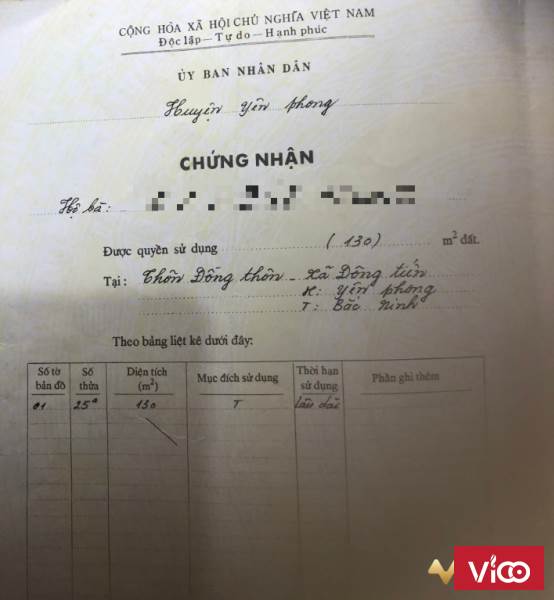 CỘNG HÒA XÃ HỘI CHỦ NGHĨA VIỆT NAM
Độc lập - Tự do - Hạnh phúc
ỦY BAN NHÂN DÂN
Huyện Yên phong
CHỨNG NHẬN
Hộ bà:
Được quyền sử dụng (130) m² đất.
Tại: Thôn Đông thôn - Xã Đông tiến
H: Yên phong
T: Bắc Ninh
Theo bảng liệt kê dưới đây:
Số tờ bản đồ Số thửa Diện tích (m²) Mục đích sử dụng Thời hạn sử dụng Phần ghi thêm
01 25a 130 T lâu dài
Vico